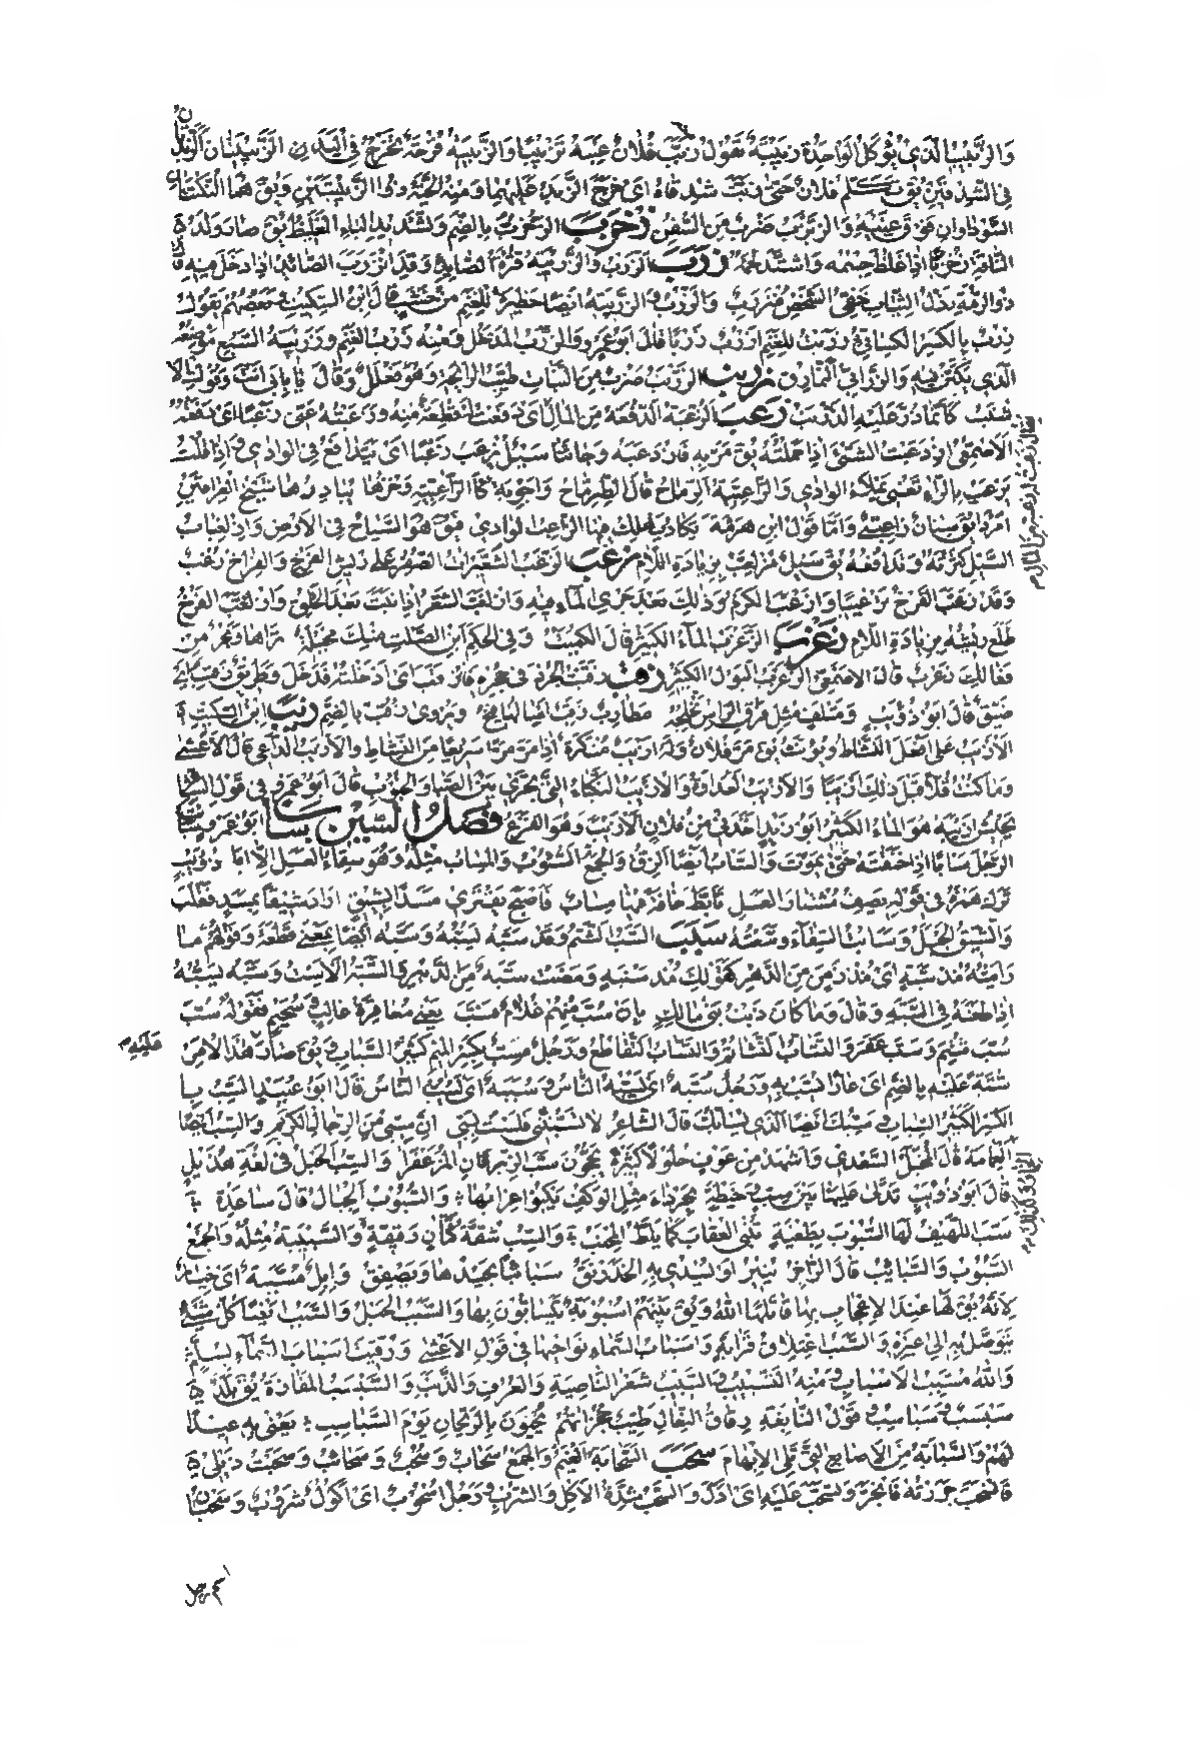 والزبيب الذي يؤكل الواحدة زبيبة تقول زبب فلان عنبه تزبيبا والزبيبة قرحة تخرج في اليد والزبيبتان الزبدتان
في الشدقين يق تكلم فلان حتى زبب شدقاه اى خرج الزبد عليهما ومنه الحية ذو الزبيبتين ويق هما النكتتان
السوداوان فوق عينيه والزبزب ضرب من السفن زخرب الزخزب بالضم وتشديد الباء الغليظ يق صار ولد
الناقة زخزبا اذا غلظ جسمه واشتد لحمه زرب الزرب والزريبة قترة الصائد وقد انزرب الصائد اذا دخل فيه قال
ذو الرمة رذل الثياب خفى الشخص منزرب والزرب والزريبة ايضا حظيرة للغنم من خشب قال ابن السكيت وبعضهم يقول
زرب بالكسر الكسائي زربت للغنم ازرب زربا قال ابو عمرو والزرب المدخل ومنه زرب الغنم وزريبة السبع موضعه
الذي يكتن فيه والزرابي النمارق زرنب الزرنب ضرب من النبات طيب الرائحة وهو فعلل وقال يا بابى انت وفوك الا
شنب كانما ذر عليه الزرنب زعب الزعبة الدفعة من المال اى دفعت له قطعة منه وزعبته عنى زعبا اى دفعته
الاصمعي ازدعبت الشئ اذا حملته يق مر به فازدعبه وجاءنا سيل يزعب زعبا اى يتدافع في الوادي واذا قلت
يرعب بالراء تعنى يملاء الوادي والزاعبية الرماح قال الطرماح واجوبة كالزاعبية وخزها يبادرها شيخ العراقين
امردا يق سنان زاعبى واما قول ابن هرمة يكاد يهلك فيها الزاعب الوادي فهو السياح في الارض وازلعباب
السيل كثرته وتدافعه يق سيل مزلعب بزيادة اللام زغب الزغب الشعيرات الصفر على ريش الفرخ والفراخ زغب
وقد زغب الفرخ تزغيبا وازغب الكرم وذلك بعد جرى الماء فيه وازلغب الشعر اذا نبت بعد الحلق وازلغب الفرخ
طلع ريشه بزيادة اللام زغرب الزغرب الماء الكثير قال الكميت وفي الحكم ابن الصلت منك مخيلة نراها وبحر من
فعالك زغرب قال الاصمعي الزغرب البول الكثير زقب زقبت الجرذ في جحره فانزقب اى ادخلته فدخل وطريق زقب اى
ضيق قال ابو ذؤيب ومتلف مثل فرق الراس تخلجه مطارب زقب اميالها فيح ويروى زقب بالضم زيب ابن السكيت
الازيب على افعل النشاط ويؤنث يق مر فلان وله ازيب منكرة اذا مر مرا سريعا من النشاط والازيب الدعي قال الاعشى
وما كنت قلا قبل ذلك ازيبا والازيب العداوة والازيب النكباء التي تجري بين الصبا والجنوب قال ابو عمرو في قول الشاعر
هو الماء الكثير ابو زيد اخذني من فلان الازيب وهو الفزع فصل السين ساب ابو عمرو سابت
الرجل سابا اذا خنقته حتى يموت والساب ايضا الزق والجمع السؤوب والمساب مثله وهو سقاء العسل الا ان ابا ذؤيب
ترك همزه في قوله يصف مشتار العسل تابط خافة فيها مساب فاصبح يقترى مسدا بشيق اراد شيقا بمسد فقلب
والشيق الجبل وسابت السقاء وسعته سبب السب الشتم وقد سبه يسبه وسبه ايضا بمعنى قطعه وقولهم ما
رايته منذ سبة اى منذ زمن من الدهر كقولك منذ سنة ومضت سبة من الدهر والسبة الاست وسبه يسبه
اذا طعنه في السبة وقال وما كان ذنب بنى مالك بان سب منهم غلام فسب يعنى معاقرة غالب وسحيم فقوله سب
شتم وسب عقر والتساب التشاتم والتساب التقاطع ورجل مسب بكسر الميم كثير السباب ويق صار هذا الامر
سبة عليه بالضم اى عارا يسب به ورجل سبة اى يسبه الناس وسببة اى يسب الناس قال ابو عبيد السب
بالكسر الكثير السباب وسبك ايضا الذي يسابك قال الشاعر لا تسبننى فلست بسبى ان سبى من الرجال الكريم والسب ايضا
العمامة قال المخبل السعدي واشهد من عوف حلولا كثيرة يحجون سب الزبرقان المزعفرا والسب الحبل في لغة هذيل
قال ابو ذؤيب تدلى عليها بين سب وخيطة بجرداء مثل الوكف يكبو غرابها والسبوب الحبال قال ساعدة
صب اللهيف لها السبوب بطغية تنبى العقاب كما يلط المجنب والسب شقة كتان رقيقة والسبيبة مثله والجمع
السبوب والسبائب قال الراجز ينير او يسدي به الخدرنق سبائبا يجيدها ويصفق وابل مسببة اى خيار
لانه يق لها عند الاعجاب بها قاتلها الله ويق بينهم اسبوبة يتسابون بها والسبب الحبل والسبب ايضا كل شئ
يتوصل به الى غيره والسبب اعتلاق قرابة واسباب السماء نواحيها في قول الاعشى ورقيت اسباب السماء بسلم
والله مسبب الاسباب ومنه التسبيب والسبيب شعر الناصية والعرف والذنب والسبسب المفازة يق بلد
سبسب وسباسب وقول النابغة رقاق النعال طيب حجزاتهم يحيون بالريحان يوم السباسب يعنى به عيدا
لهم والسبابة من الاصابع التي تلى الابهام سحب السحابة الغيم والجمع سحاب وسحب وسحائب وسحبت ذيلى
فانسحب جررته فانجر وتسحب عليه اى ادل والسحب شدة الاكل والشرب ورجل اسحوب اى اكول شروب وسحبان
عليه